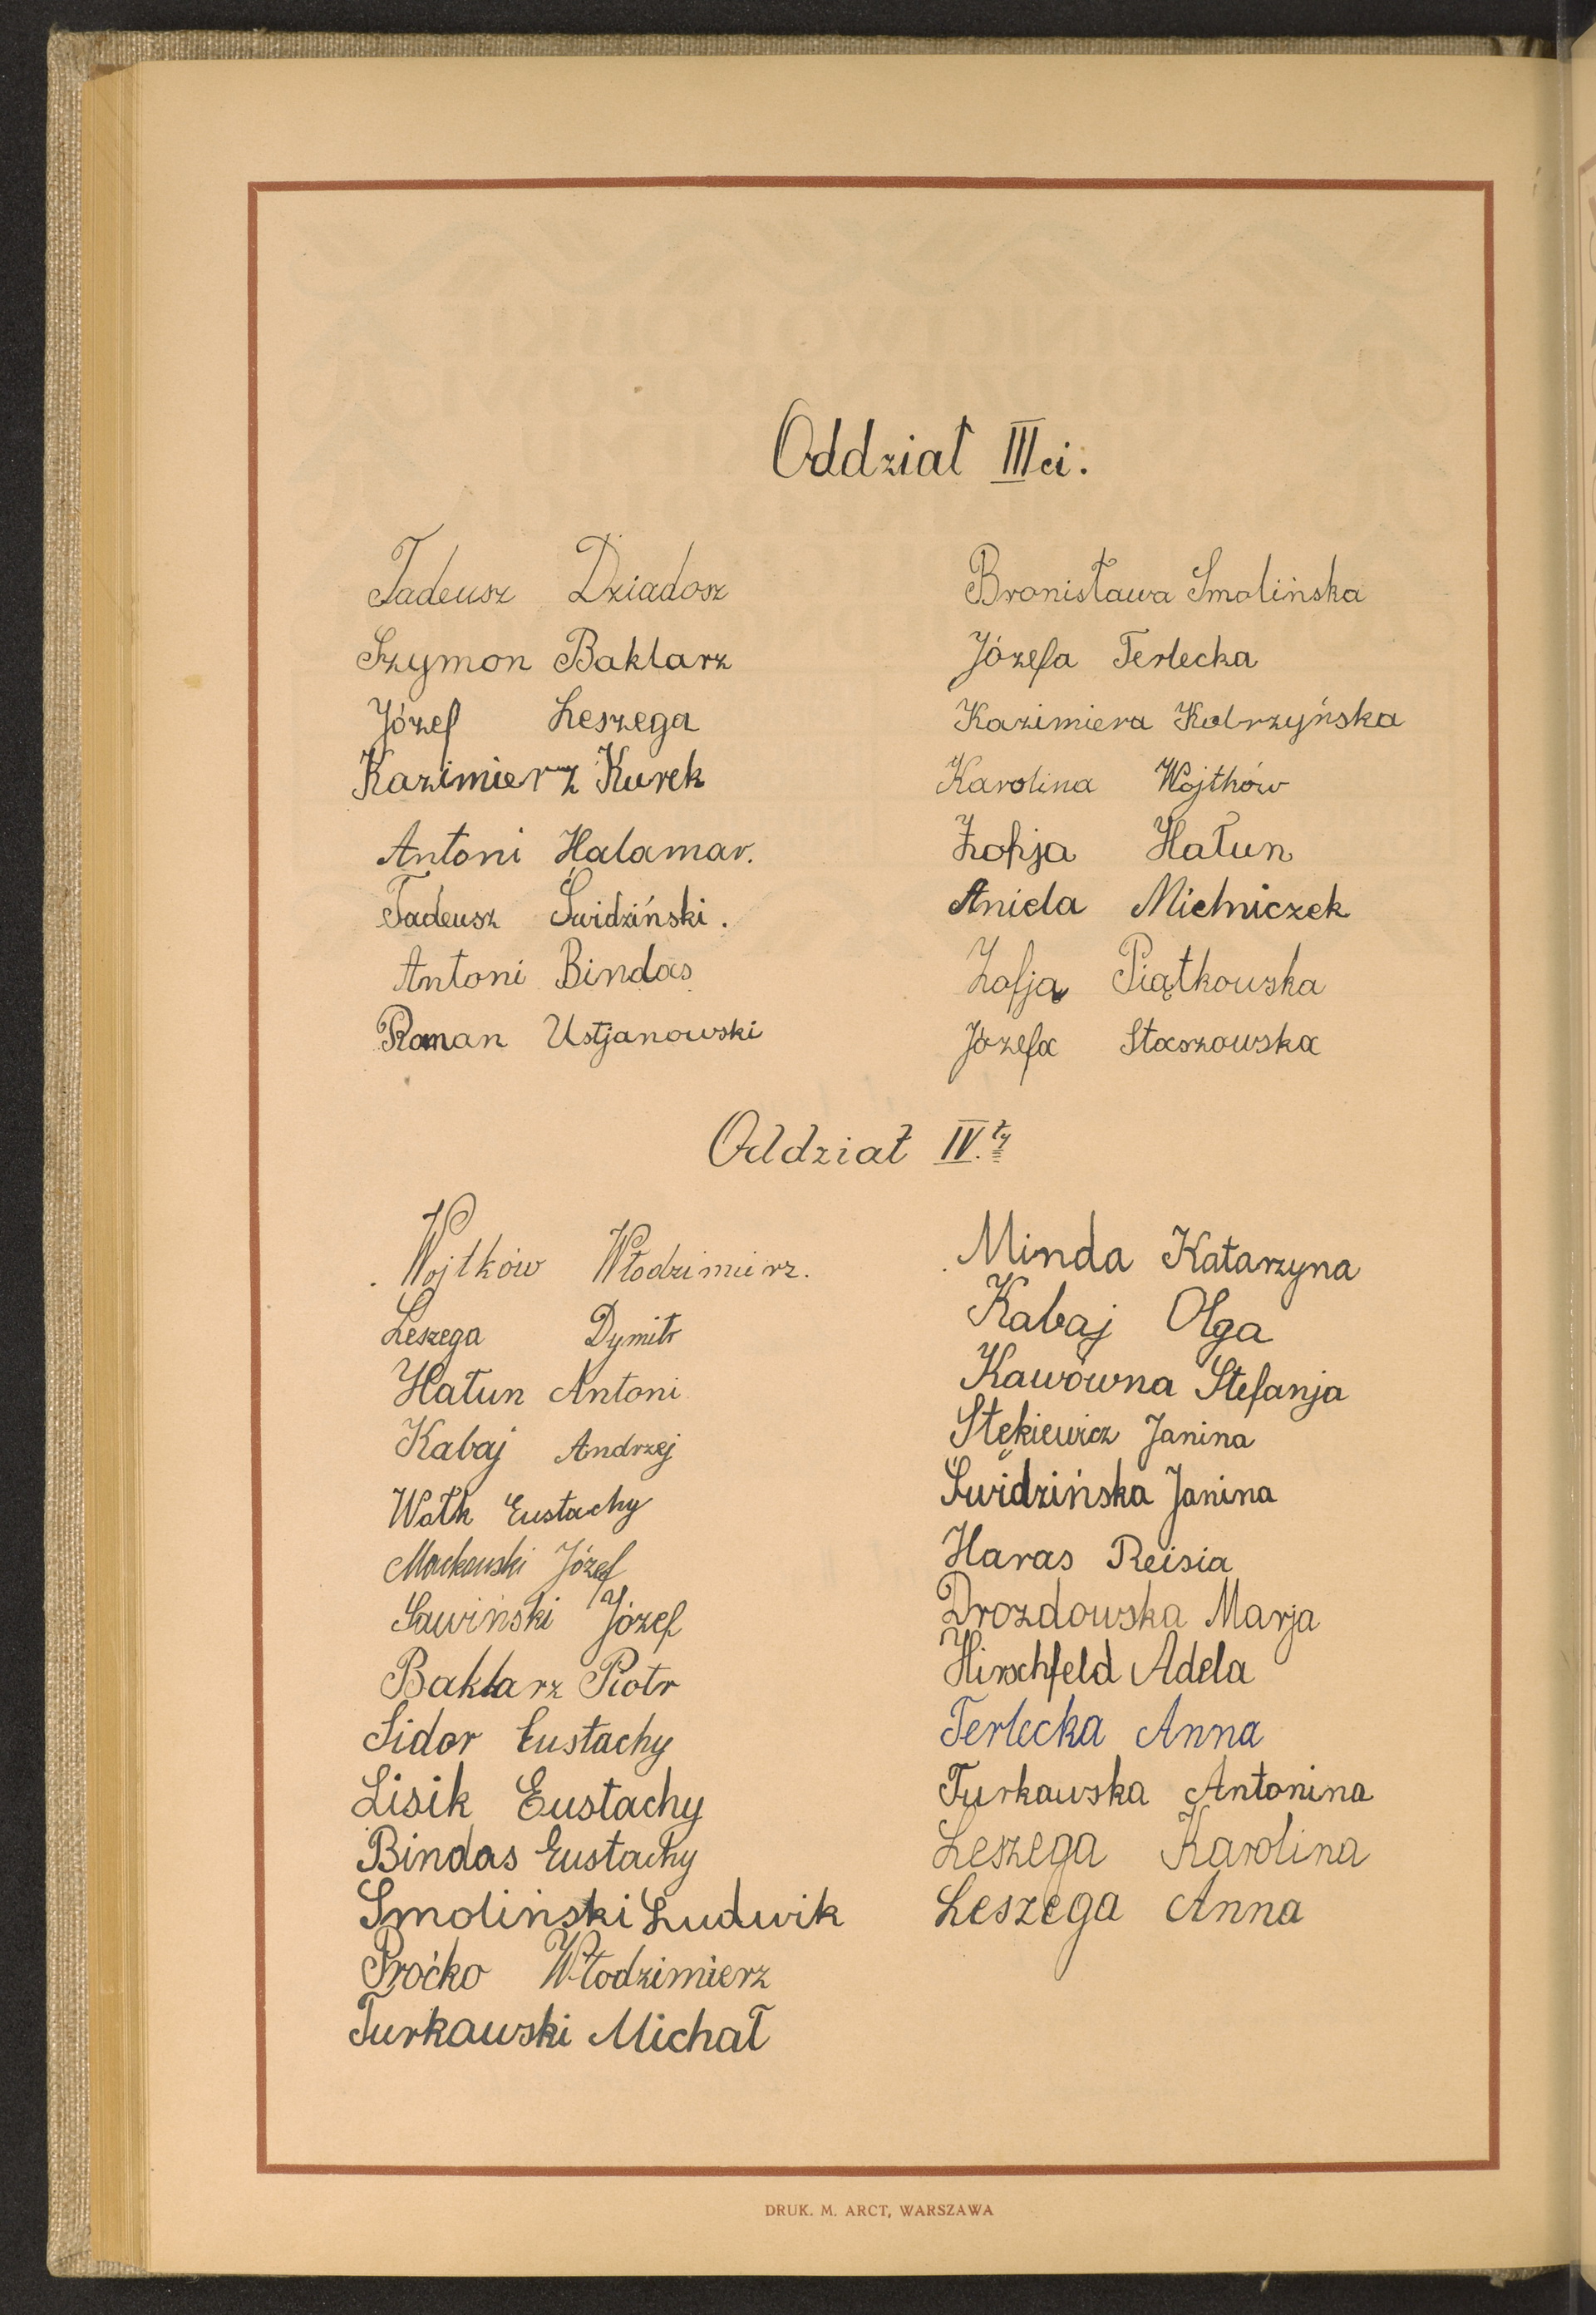 Oddział III ci.
Tadeusz Dziadosz
Szymon Baklarz
Józef Leszega
Kazimierz Kurek
Antoni Halamar.
Tadeusz Świdziński.
Antoni Bindas
Roman Ustjanowski
Bronisława Smolińska
Józefa Terlecka
Kazimiera Kobrzyńska
Karolina Wojtków
Zofja Hałun
Aniela Mielniczek
Zofja Piątkowska
Józefa Staszowska
Oddział IV.ty
Wojtków Włodzimierz.
Leszega Dymitr
Hałun Antoni
Kabaj Andrzej
Wołk Eustachy
Józef
Sawiński Józef
Baklarz Piotr
Sidor Eustachy
Lisik Eustachy
Bindas Eustachy
Smoliński Ludwik
Proćko Włodzimierz
Turkawski Michał
Minda Katarzyna
Kabaj Olga
Kawówna Stefanja
Stękiewicz Janina
Świdzińska Janina
Haras Reisia
Drozdowska Marja
Hirschfeld Adela
Terlecka Anna
Turkawska Antonina
Leszega Karolina
Leszega Anna
DRUK. M. ARCT, WARSZAWA